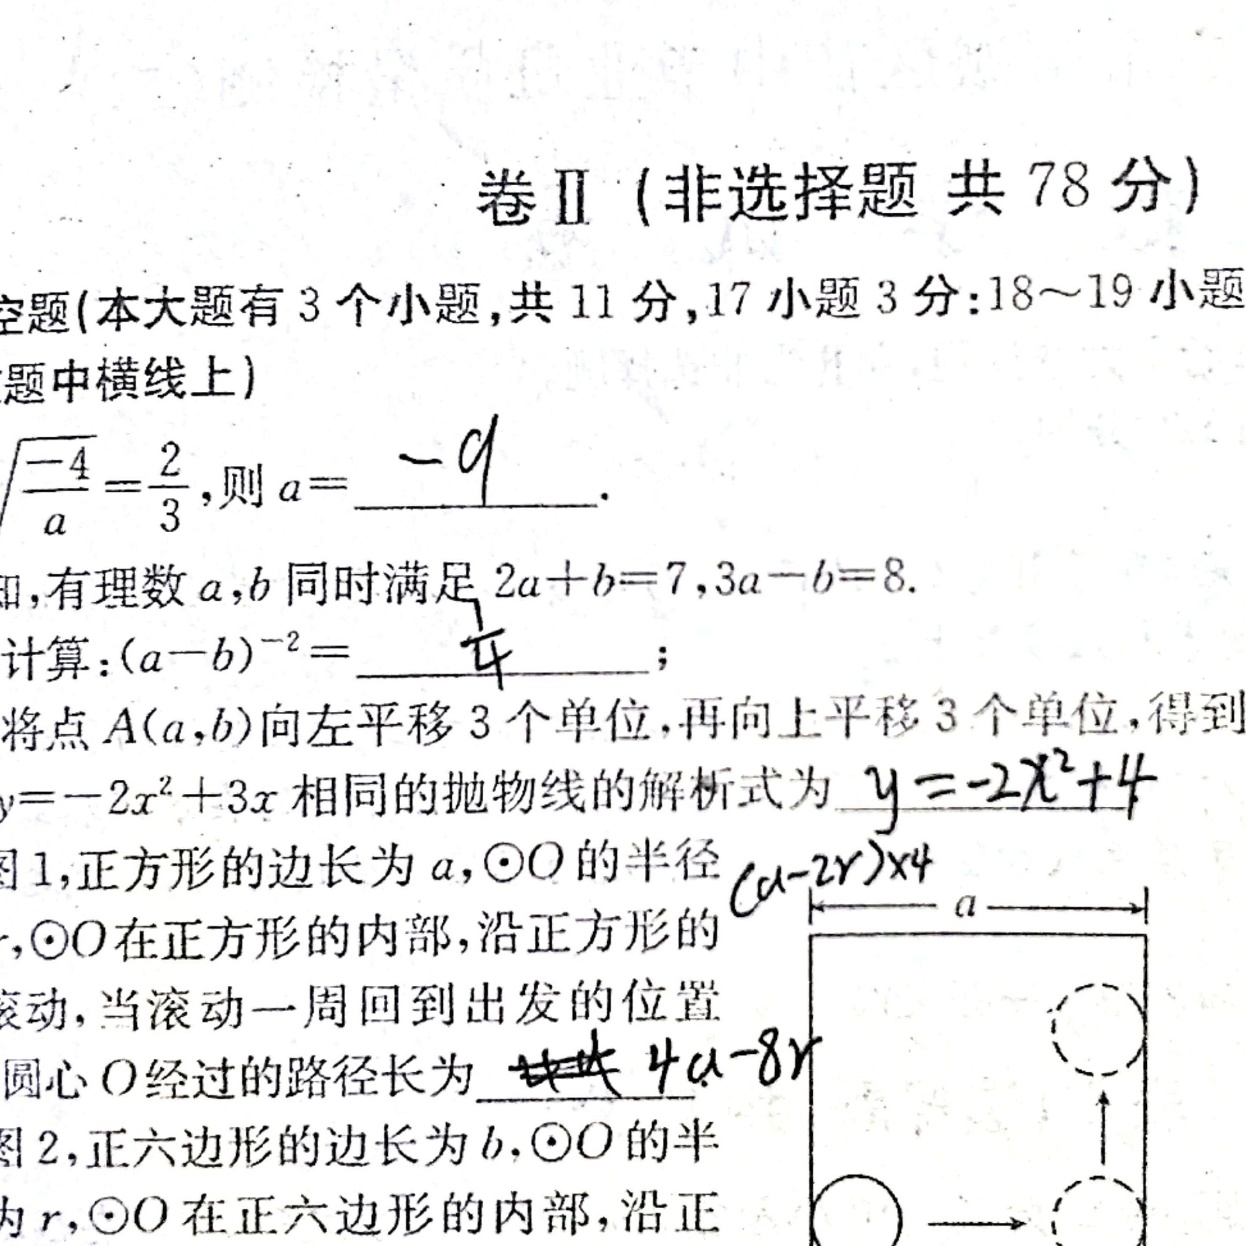 卷Ⅱ (非选择题 共 78 分)
空题(本大题有 3 个小题,共 11 分,17 小题 3 分:18～19 小题
题中横线上)
√(-4/a)=2/3,则 a= -9 .
知,有理数 a,b 同时满足 2a+b=7,3a-b=8.
计算:(a-b)⁻²= 1/4 ;
将点 A(a,b)向左平移 3 个单位,再向上平移 3 个单位,得到
y=-2x²+3x 相同的抛物线的解析式为 y=-2x²+4
图 1,正方形的边长为 a,⊙O 的半径
(a-2r)×4
a
r,⊙O 在正方形的内部,沿正方形的
滚动,当滚动一周回到出发的位置
圆心 O 经过的路径长为 4a-8r
图 2,正六边形的边长为 b,⊙O 的半
为 r,⊙O 在正六边形的内部,沿正